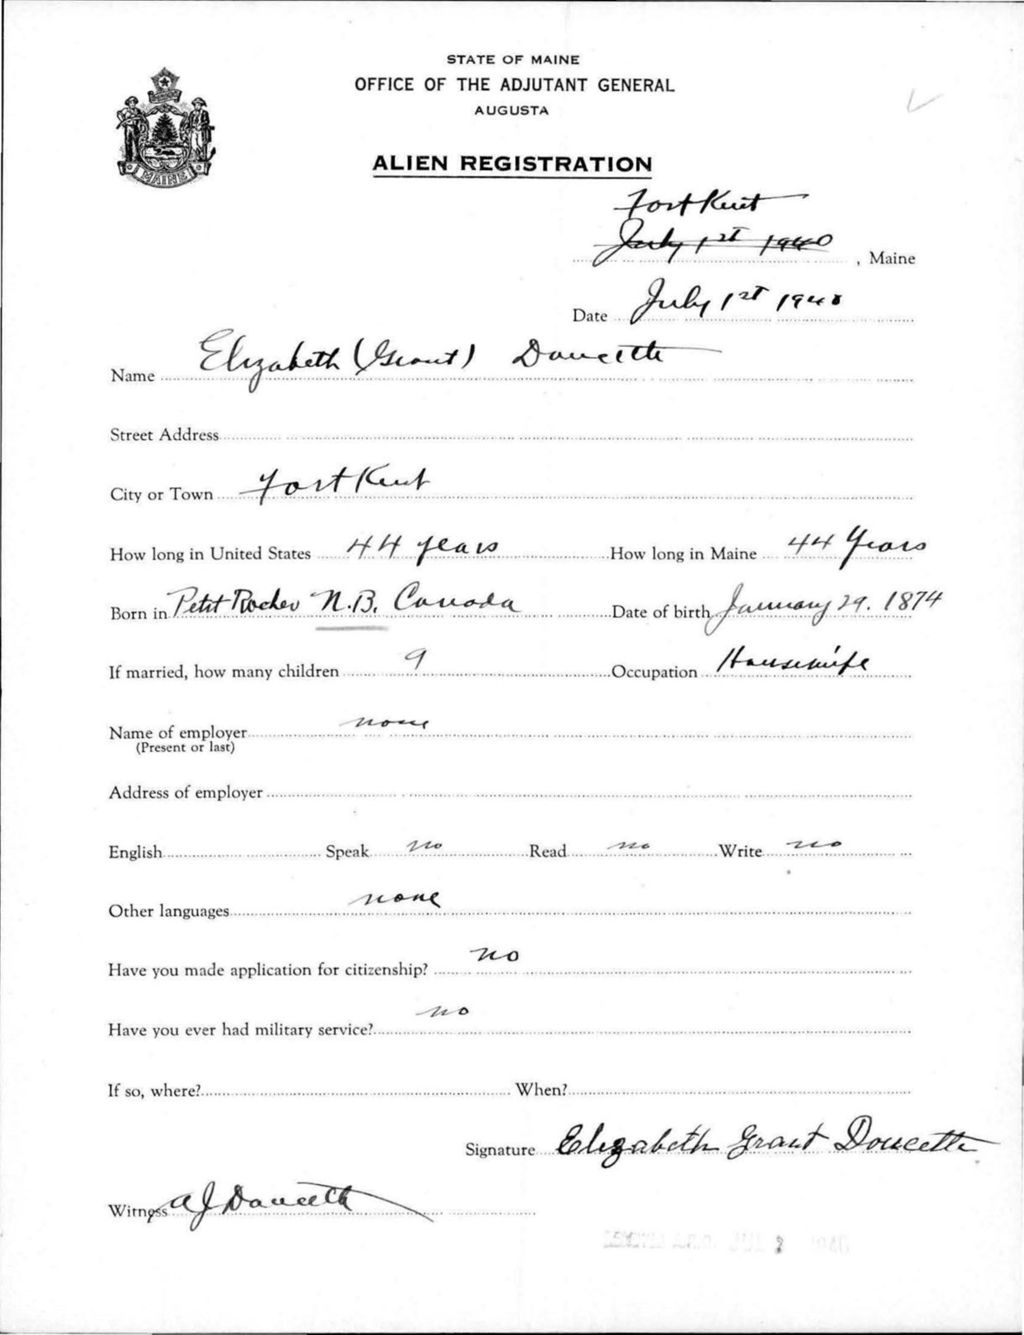 STATE OF MAINE
OFFICE OF THE ADJUTANT GENERAL
AUGUSTA
MAINE
ALIEN REGISTRATION
Fort Kent
July 1st 1940, Maine
Date July 1st 1940
Name Elizabeth (Grant) Doucette
Street Address
City or Town Fort Kent
How long in United States 44 years How long in Maine 44 Years
Born in Petit Rocher N.B. Canada Date of birth January 29. 1874
If married, how many children 9 Occupation Housewife
Name of employer none
(Present or last)
Address of employer
English Speak no Read no Write no
Other languages none
Have you made application for citizenship? no
Have you ever had military service? no
If so, where? When?
Signature Elizabeth Grant Doucette
Witness A J Doucette